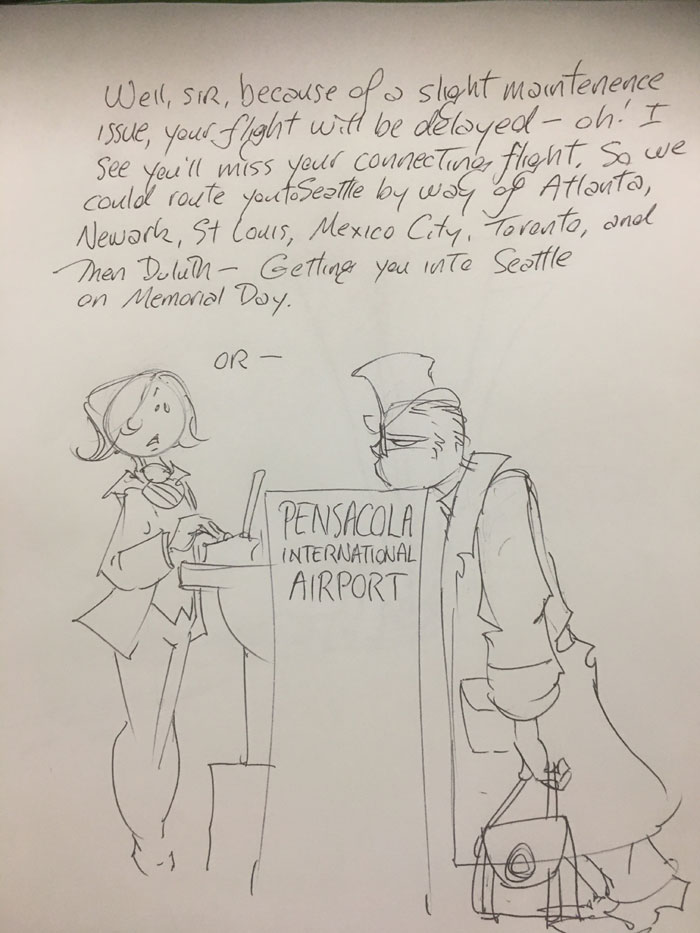 Well, SIR, because of a slight maintenence
issue, your flight will be delayed - oh! I
see you'll miss your connecting flight. So we
could route you to Seattle by way of Atlanta,
Newark, St Louis, Mexico City, Toronto, and
Then Duluth - Getting you into Seattle
on Memorial Day.
OR -
PENSACOLA
INTERNATIONAL
AIRPORT